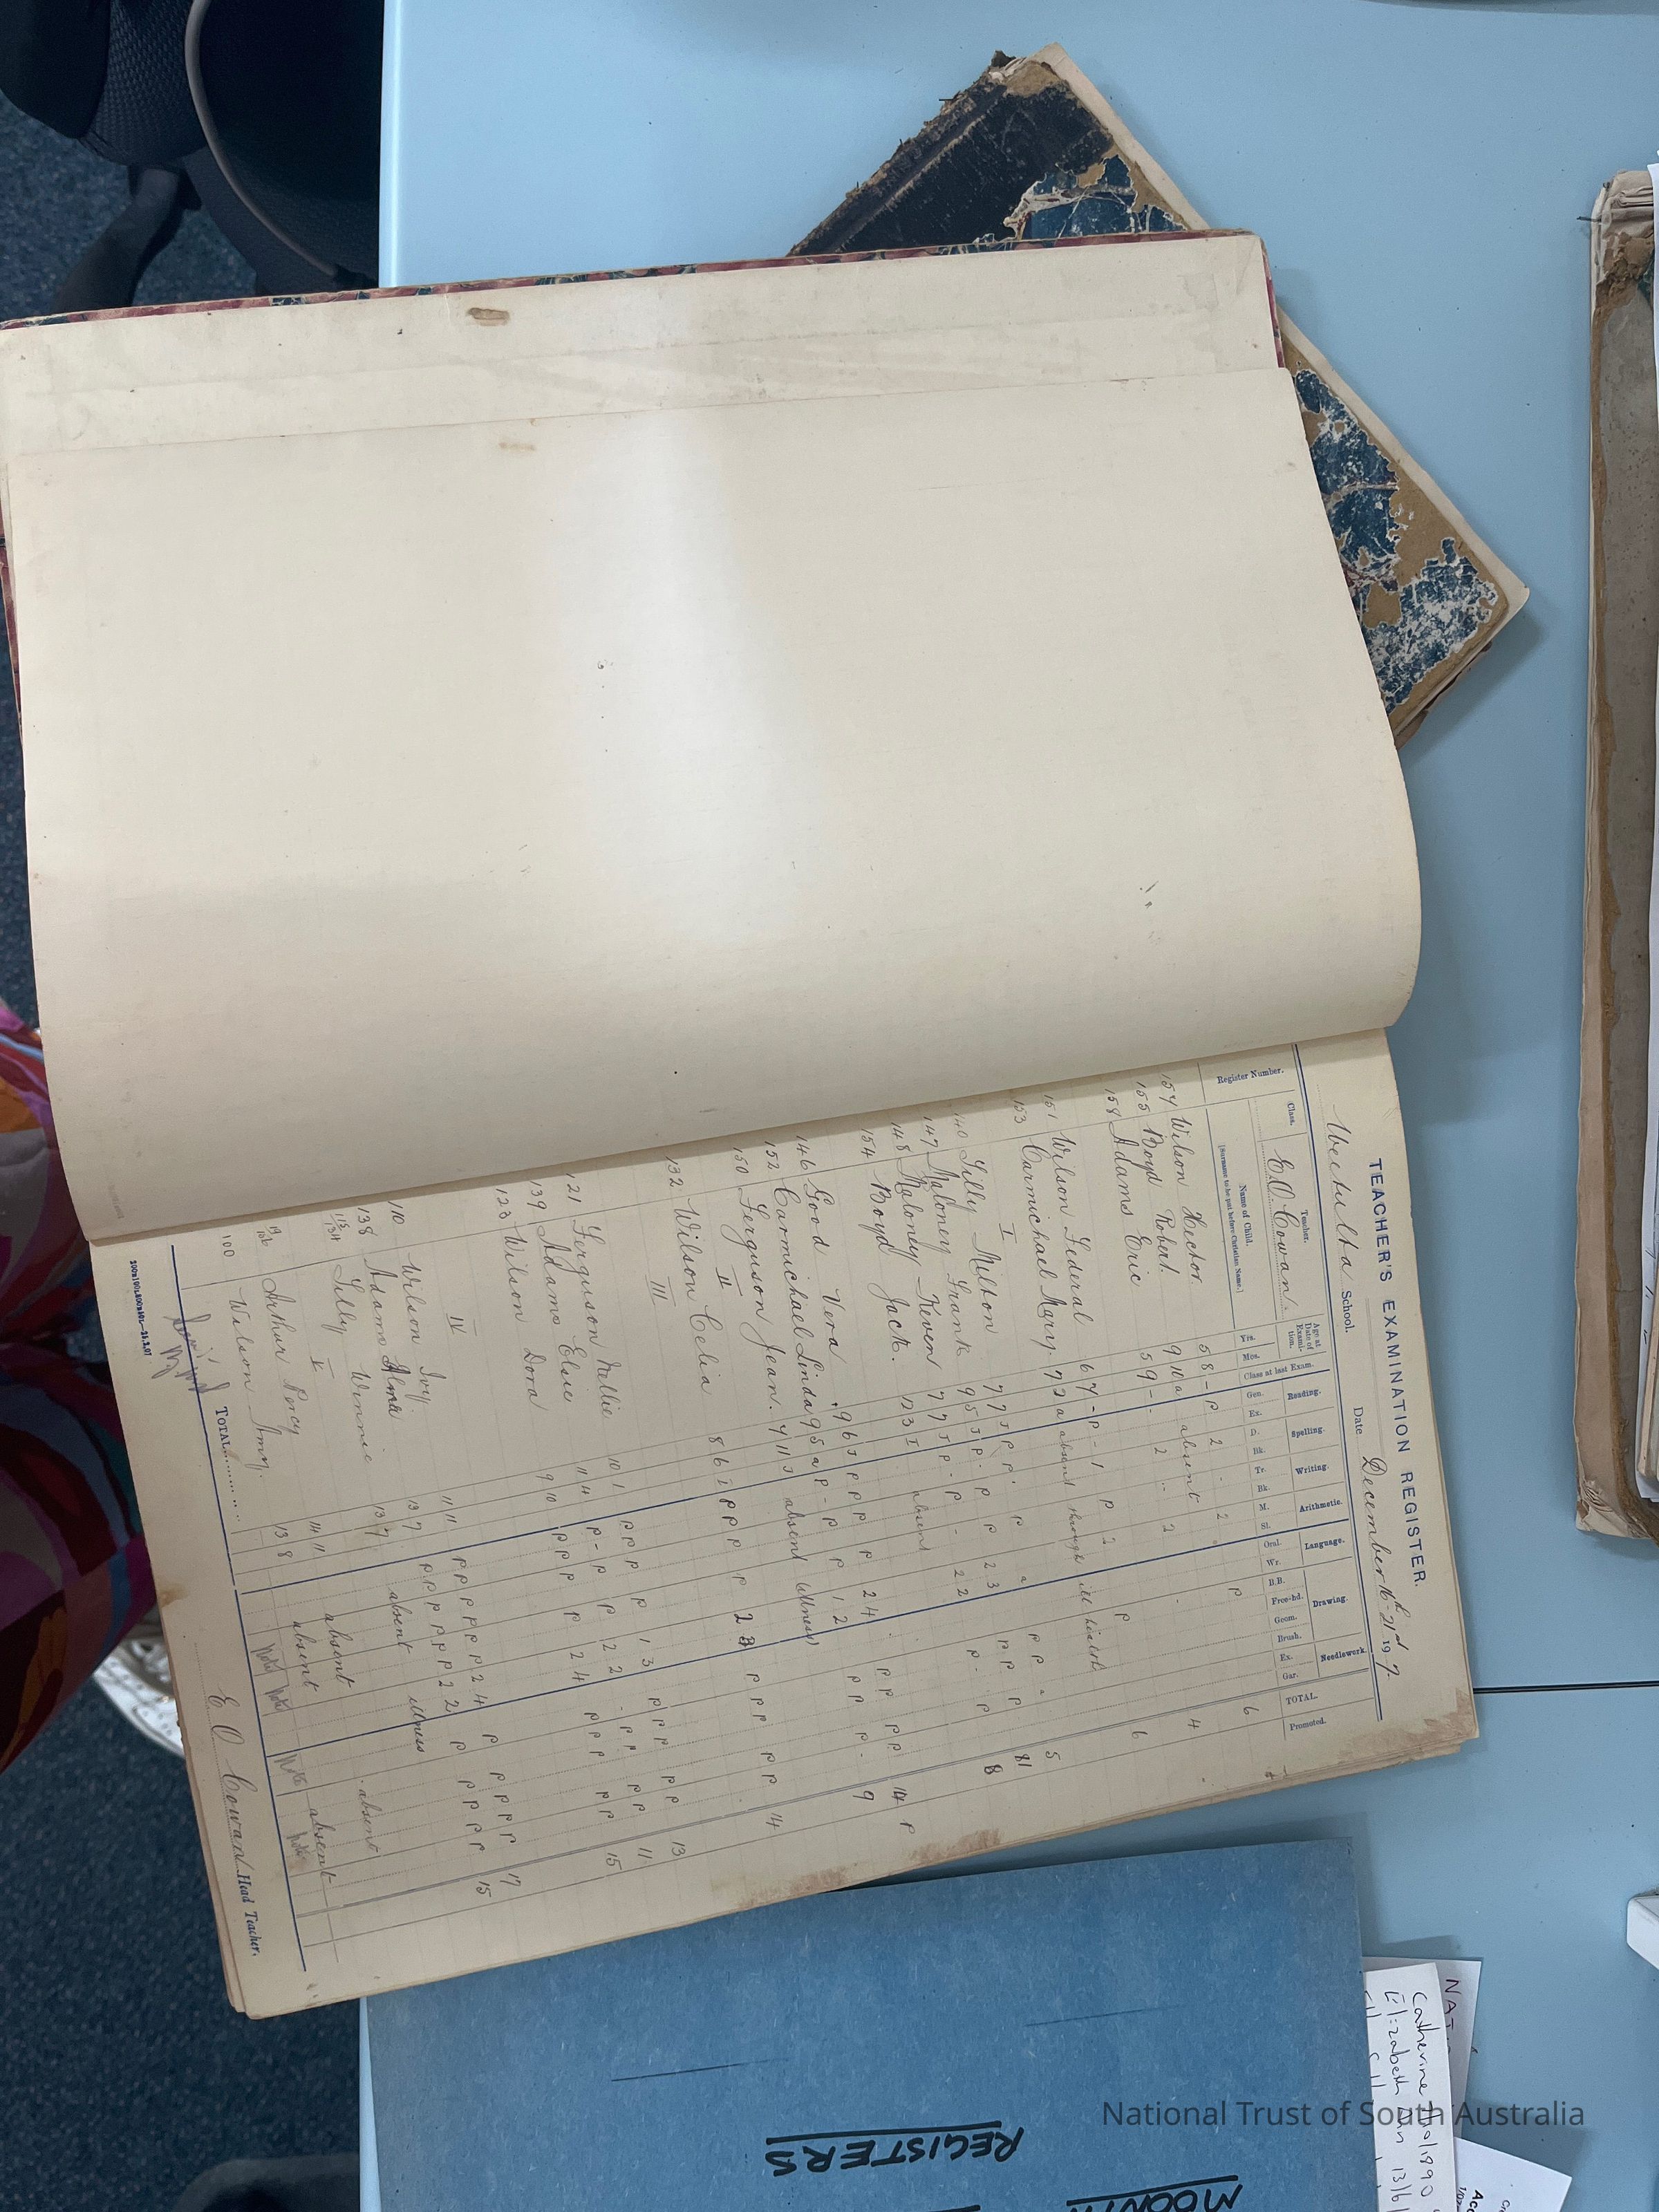 TEACHER'S EXAMINATION REGISTER.
Weetulta School. Date December 16th-21st 1907.
Class. Teacher. Age at Date of Examination. Class at last Exam. Reading. Spelling. Writing. Arithmetic. Language. Drawing. Needlework. TOTAL. Promoted.
E O Cowan.
Register Number. Name of Child. Yrs. Mos. Gen. Ex. Tr. Bk. M. Sl. Oral. Wr. B.B. Free-hd. Geom. Brush. Ex. Gar.
[Surname to be put before Christian Name.]
157 Wilson Hector. 5 8 - P 2 - 2 P 6
155 Boyd Robert. 9 10 a absent 4
158 Adams Eric 5 9 - 2 2 P 6
151 Wilson Federal 6 7 - P - 1 P 2
153 Carmichael Mary. 7 2 a absent through ill health
I
140 Lilly Milton 7 7 J P P P 5
147 Maloney Frank 9 5 J P - P P 2 3 P P P 81
148 Maloney Keven 7 7 J P - P - 2 2 P - P 8
154 Boyd Jack. 12 3 I absent
146 Good Vera 9 6 J P P P P 2 4 P P P P 14 P
152 Carmichael Linda 9 5 a P - P P 1 2 P P P - 9
150 Ferguson Jean. 7 11 J absent (illness)
II
132 Wilson Celia 8 6 I P P P P 2 P P P P 14
III
121 Ferguson Nellie 10 1 P P P P 1 3 P P P P 13
139 Adams Elsie 11 4 P - P P 2 2 - P P P P 11
123 Wilson Dora 9 10 P P P P 2 4 P P P P P 15
IV
110 Wilson Ivy. 11 11 P P P P P 2 4 P P P P P 17
138 Adams Alma 13 7 P P P P P 2 2 P P P P P 15
Lilly Winnie 13 7 absent illness
V
Arthur Percy 14 11 absent absent
100 Wilson Amy. 13 8 absent absent
TOTAL
E O Cowan Head Teacher.
REGISTERS
NAT
Catherine
Elizabeth Ann 13/6/
National Trust of South Australia